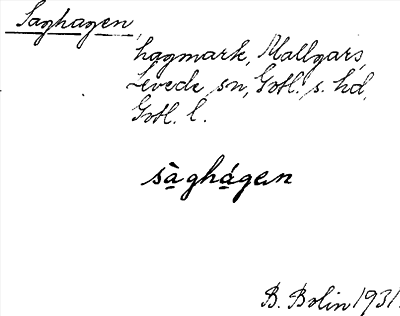 Saghagen,
hagmark, Mallgårs,
Levede sn, Gotl. s. hd,
Gotl. l.
sàghágen
B. Bolin 1931.